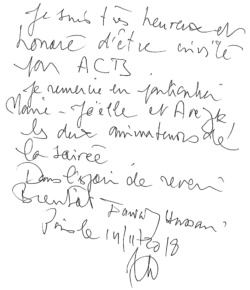 Je suis très heureux et
honoré d'être invité
par ACTB.
je remercie en particulier
Marie-Joëlle et
les deux animateurs de
la soirée
Dans l'espoir de revenir
Bientôt
Paris le 14/11/2018